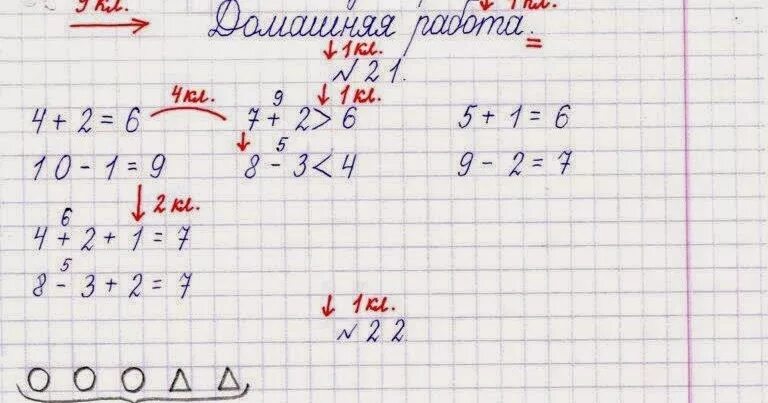 9 кл. 1 кл.
Домашняя работа.
1 кл.
№ 21.
4 кл. 9 1 кл.
4 + 2 = 6 7 + 2 > 6 5 + 1 = 6
5
10 - 1 = 9 8 - 3 < 4 9 - 2 = 7
2 кл.
6
4 + 2 + 1 = 7
5
8 - 3 + 2 = 7
1 кл.
№ 22